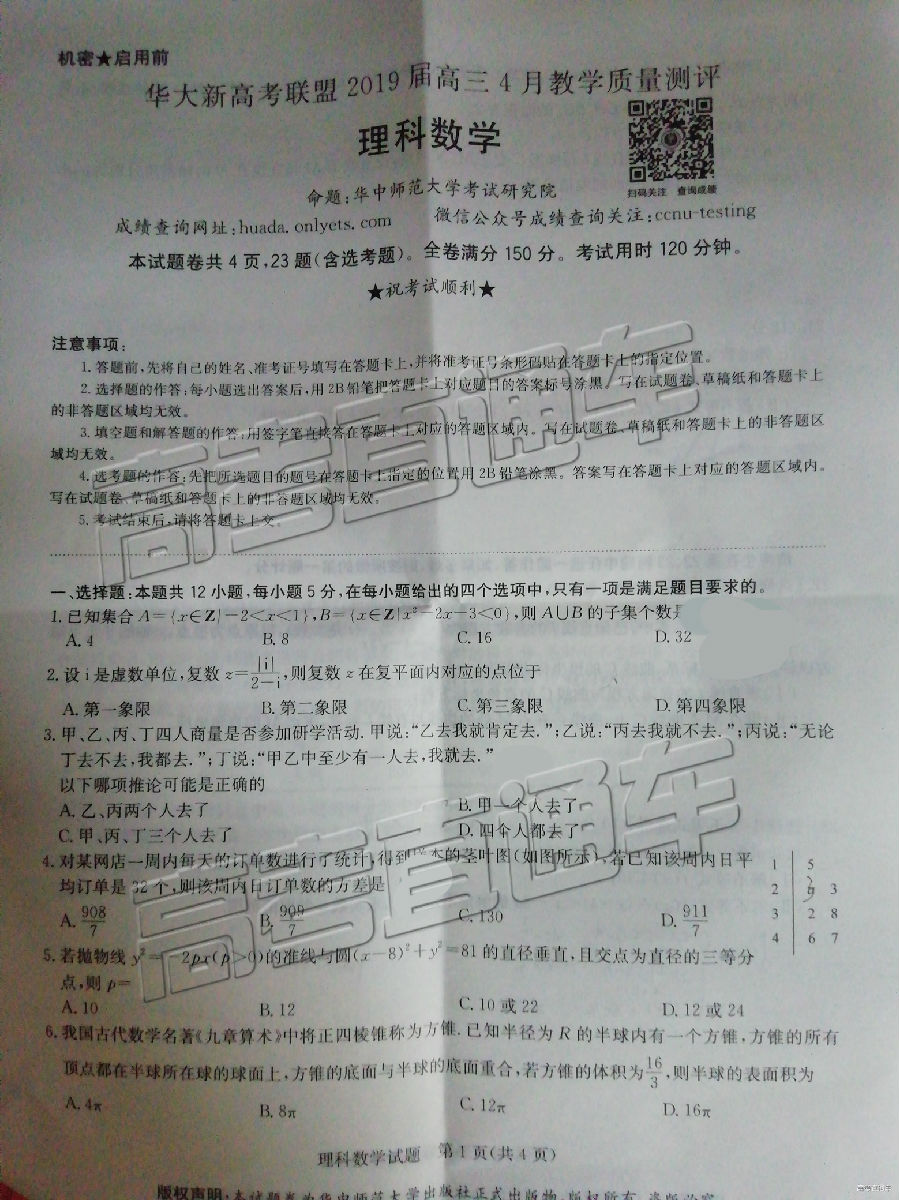 机密★启用前
华大新高考联盟2019届高三4月教学质量测评
理科数学
扫码关注 查询成绩
命题:华中师范大学考试研究院
成绩查询网址:huada.onlyets.com 微信公众号成绩查询关注:ccnu-testing
本试题卷共4页,23题(含选考题)。全卷满分150分。考试用时120分钟。
★祝考试顺利★
注意事项:
1.答题前,先将自己的姓名、准考证号填写在答题卡上,并将准考证号条形码贴在答题卡上的指定位置。
2.选择题的作答:每小题选出答案后,用2B铅笔把答题卡上对应题目的答案标号涂黑。写在试题卷、草稿纸和答题卡上
的非答题区域均无效。
3.填空题和解答题的作答:用签字笔直接答在答题卡上对应的答题区域内。写在试题卷、草稿纸和答题卡上的非答题区
域均无效。
4.选考题的作答:先把所选题目的题号在答题卡上指定的位置用2B铅笔涂黑。答案写在答题卡上对应的答题区域内。
写在试题卷、草稿纸和答题卡上的非答题区域均无效。
5.考试结束后,请将答题卡上交。
高考直通车
一、选择题:本题共12小题,每小题5分,在每小题给出的四个选项中,只有一项是满足题目要求的。
1.已知集合A={x∈Z|-2<x<1},B={x∈Z|x²-2x-3<0},则A∪B的子集个数是
A.4 B.8 C.16 D.32
2.设i是虚数单位,复数z=|i|/(2-i),则复数z在复平面内对应的点位于
A.第一象限 B.第二象限 C.第三象限 D.第四象限
3.甲、乙、丙、丁四人商量是否参加研学活动.甲说:“乙去我就肯定去.”;乙说:“丙去我就不去.”;丙说:“无论
丁去不去,我都去.”;丁说:“甲乙中至少有一人去,我就去.”
以下哪项推论可能是正确的
A.乙、丙两个人去了 B.甲一个人去了
C.甲、丙、丁三个人去了 D.四个人都去了
高考直通车
4.对某网店一周内每天的订单数进行了统计,得到样本的茎叶图(如图所示),若已知该周内日平
均订单是32个,则该周内日订单数的方差是
A.908/7 B.909/7 C.130 D.911/7
1 5
2 3
3 2 8
4 6 7
5.若抛物线y²= 2px(p>0)的准线与圆(x-8)²+y²=81的直径垂直,且交点为直径的三等分
点,则p=
A.10 B.12 C.10或22 D.12或24
6.我国古代数学名著《九章算术》中将正四棱锥称为方锥.已知半径为R的半球内有一个方锥,方锥的所有
顶点都在半球所在球的球面上,方锥的底面与半球的底面重合,若方锥的体积为16/3,则半球的表面积为
A.4π B.8π C.12π D.16π
理科数学试题 第1页(共4页)
版权声明:本试题卷为华中师范大学出版社正式出版物,版权所有,盗版必究